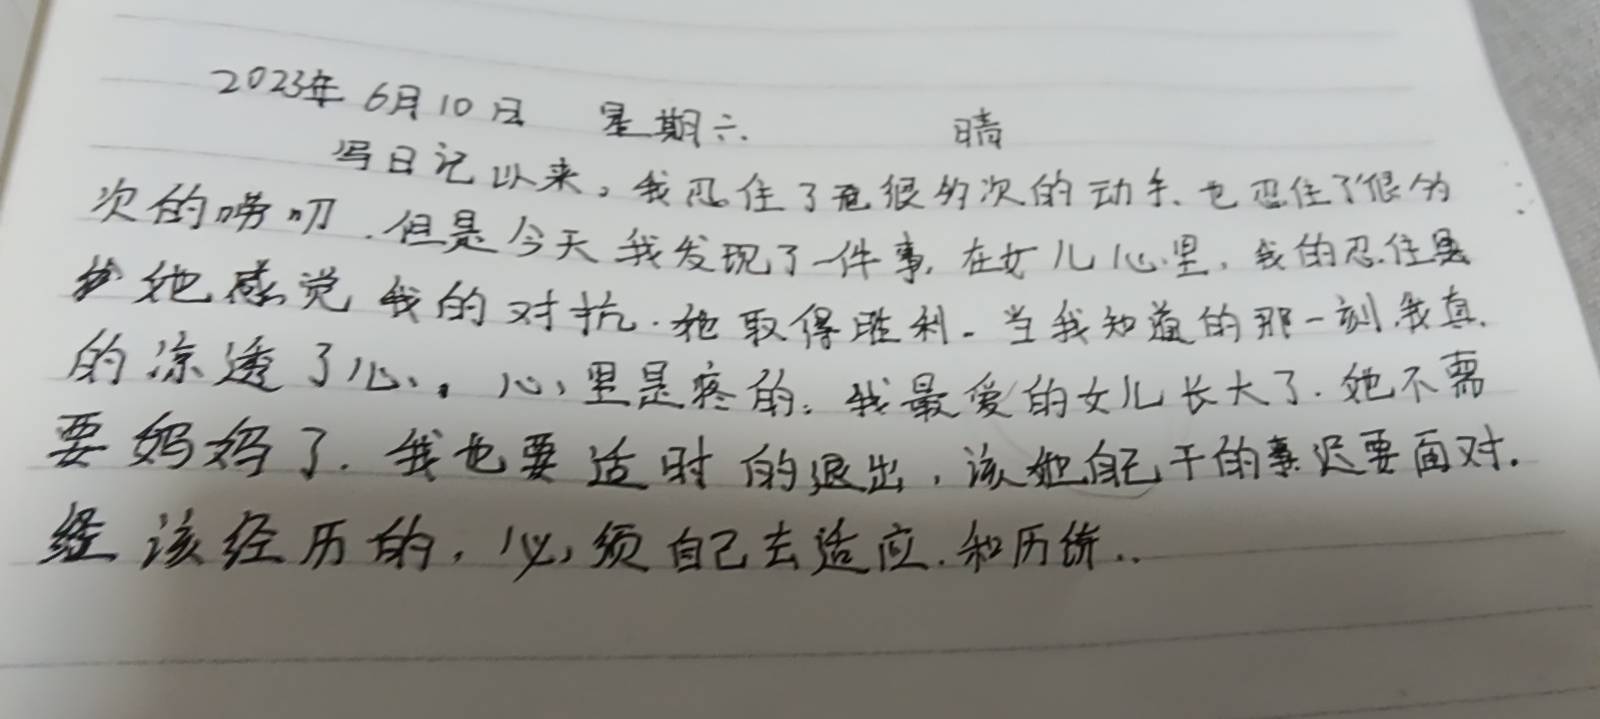 2023年 6月10日 星期六. 晴
写日记以来，我忍住了很多次的动手、也忍住了很多
次的唠叨.但是今天我发现了一件事,在女儿心里,我的忍住是
她感觉我的对抗.她取得胜利.当我知道的那一刻,我真.
的凉透了心.。心里是疼的.我最爱的女儿长大了.她不需
要妈妈了.我也要适时的退出,该她自己干的事迟要面对.
该经历的,必须自己去适应.和历练..